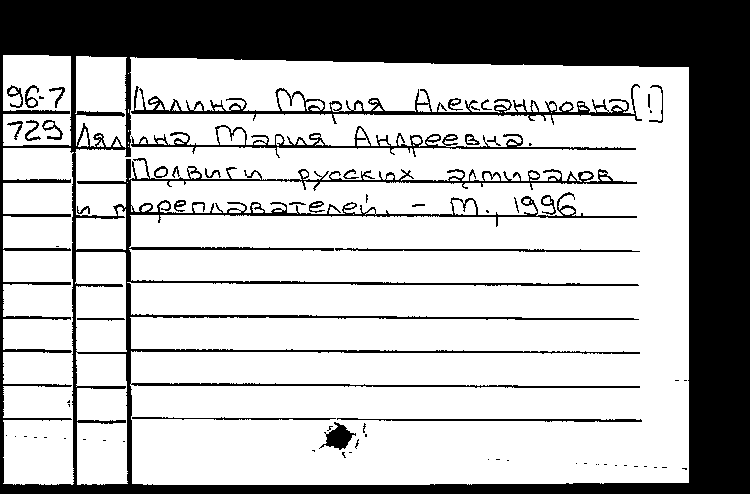 96-7 Лялина, Мария Александровна[!]
729 Лялина, Мария Андреевна.
Подвиги русских адмиралов
и мореплавателей. - М., 1996.